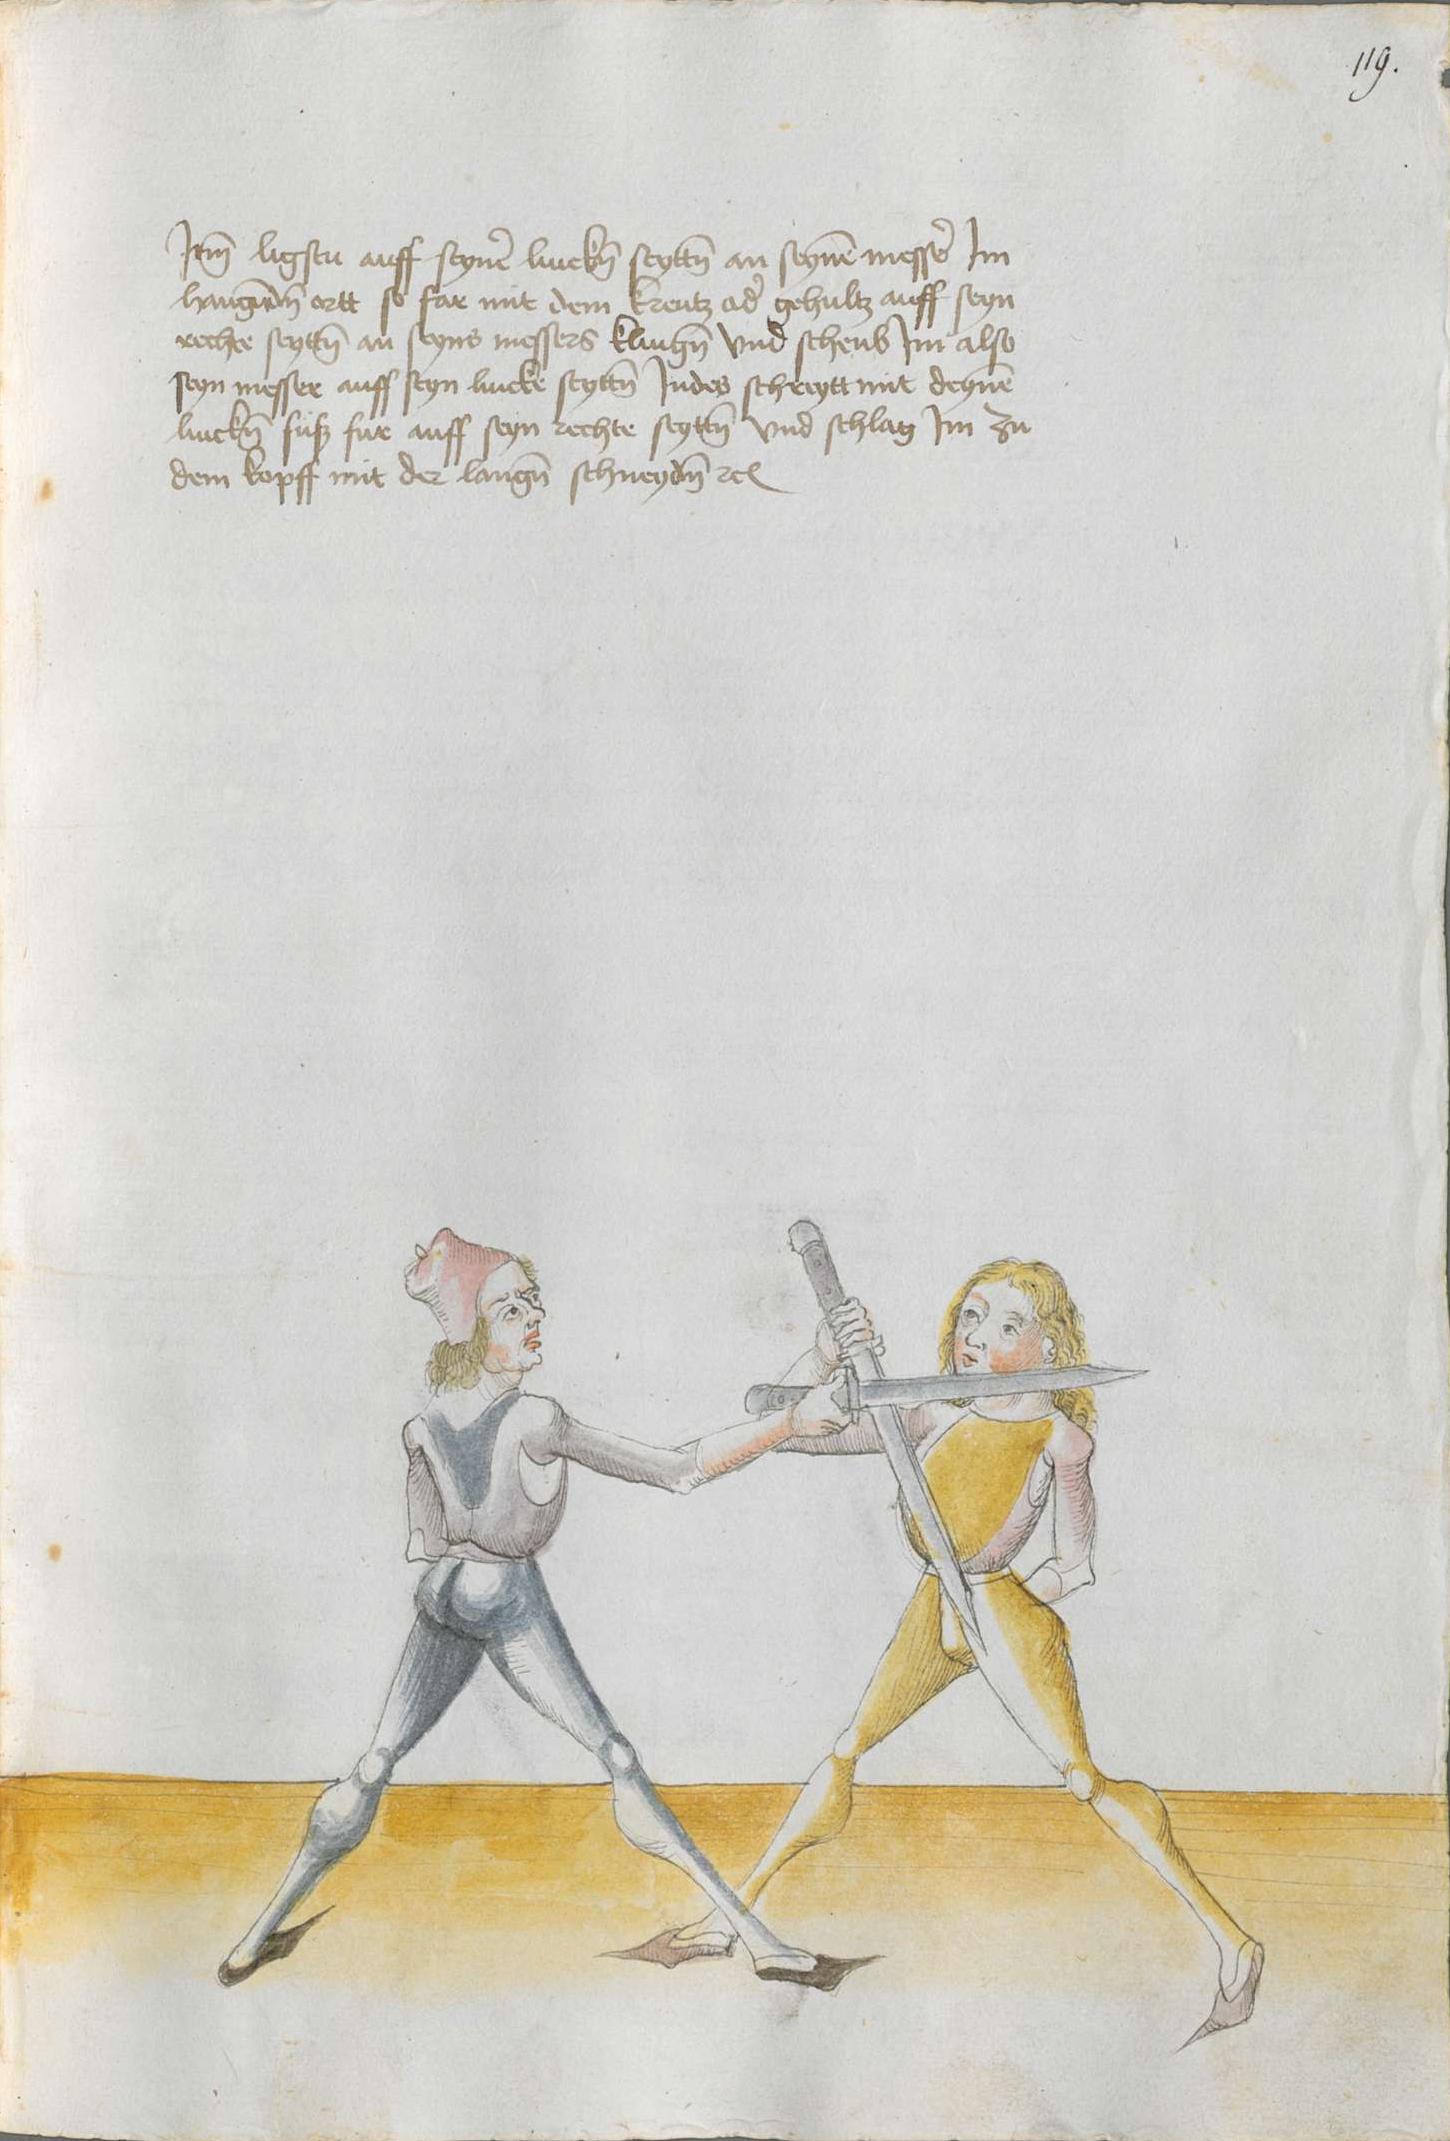 119.
Itm̄ ligstu auff seyner̄ linckn̄ seyttn̄ an seynē messer̄ Im
hangndn̄ ortt so far mit dem kreutz oder̄ gehultz auff seyn
rechte seyttn̄ an seyns messers klingn̄ Vnd scheub Im also
seyn messer auff seyn lincke seyttn̄ Indes schreytt mit deynē
linckn̄ fuß fur auff seyn rechte seyttn̄ Vnd schlag Im zu
dem kopff mit der langn̄ schneydn̄ rc